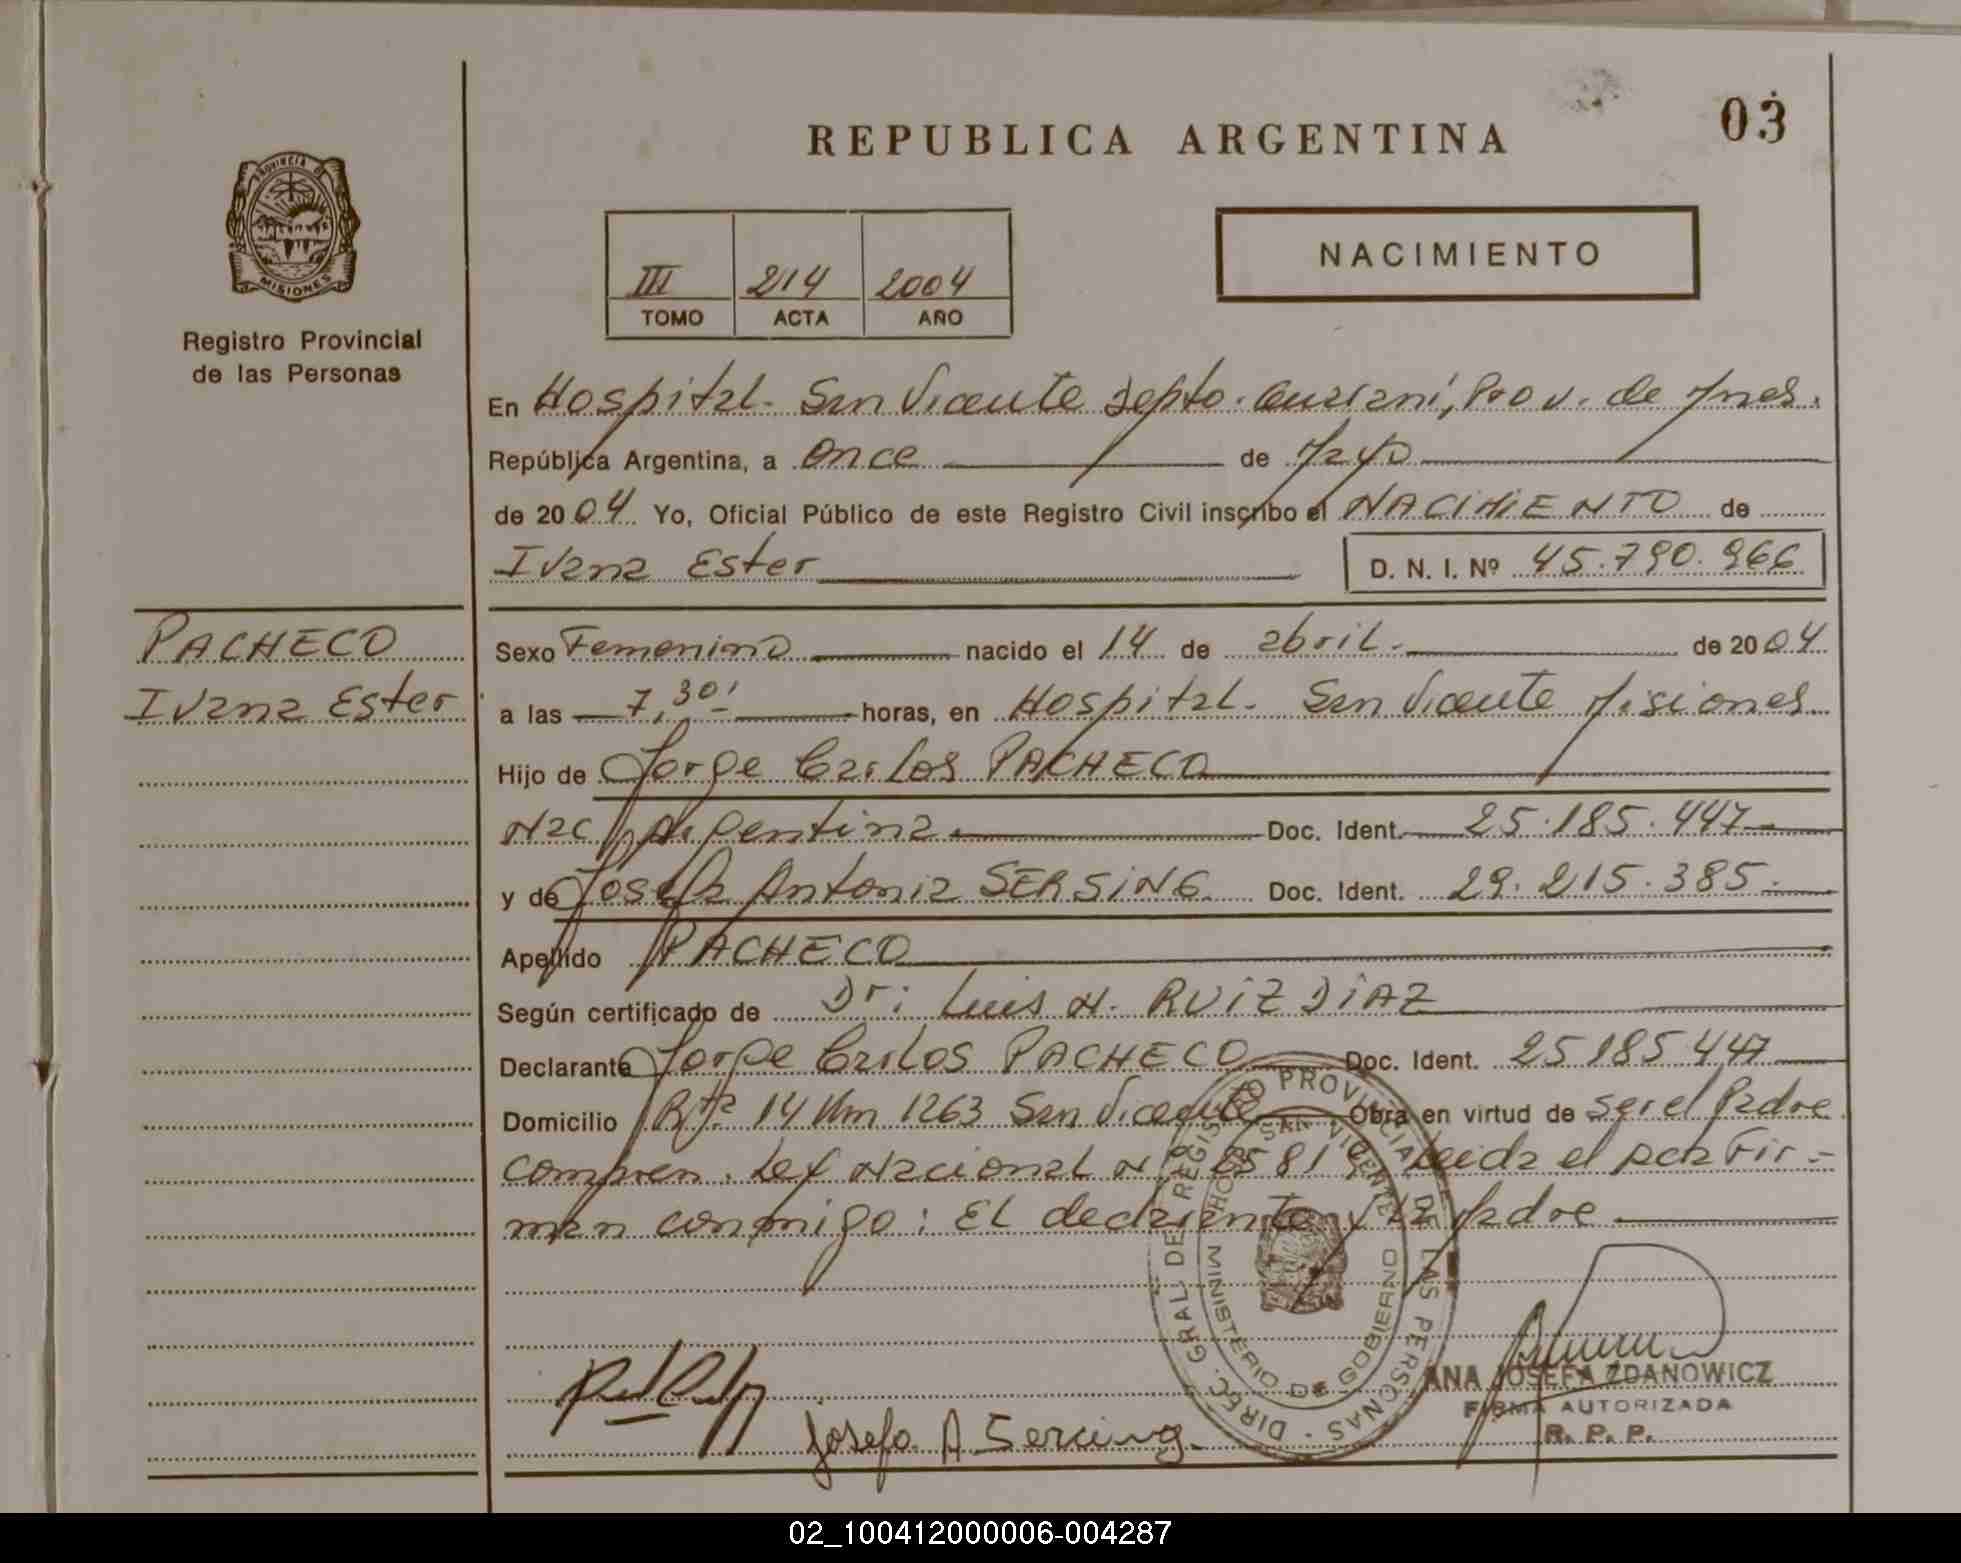 REPUBLICA ARGENTINA
03
PROVINCIA DE
MISIONES
Registro Provincial
de las Personas
III 214 2004
TOMO ACTA AÑO
NACIMIENTO
En Hospital. San Vicente Depto. Guaraní, Prov. de Mnes.
República Argentina, a once de Mayo
de 2004 Yo, Oficial Público de este Registro Civil inscribo el NACIMIENTO de
Ivana Ester D. N. I. Nº 45.790.966
PACHECO
Ivana Ester
Sexo Femenino nacido el 14 de abril. de 2004
a las 7,30' horas, en Hospital. San Vicente Misiones
Hijo de Jorge Carlos PACHECO
Nac. Argentina Doc. Ident. 25.185.447
y de Josefa Antonia SERSING Doc. Ident. 29.215.385.
Apellido PACHECO
Según certificado de Dr: Luis N. RUIZ DIAZ
Declarante Jorge Carlos PACHECO Doc. Ident. 25185447
Domicilio Rta 14 Km 1263 San Vicente Obra en virtud de ser el Padre
compren. Ley Nacional Nº 18581 Leida el acta Fir-
man conmigo: El declarante y la Madre
DIREC. GRAL DE REGISTRO PROVINCIAL DE LAS PERSONAS
HOSP. SAN VICENTE
MINISTERIO DE GOBIERNO
Josefa A Sersing
ANA JOSEFA ZDANOWICZ
FIRMA AUTORIZADA
R. P. P.
02_100412000006-004287